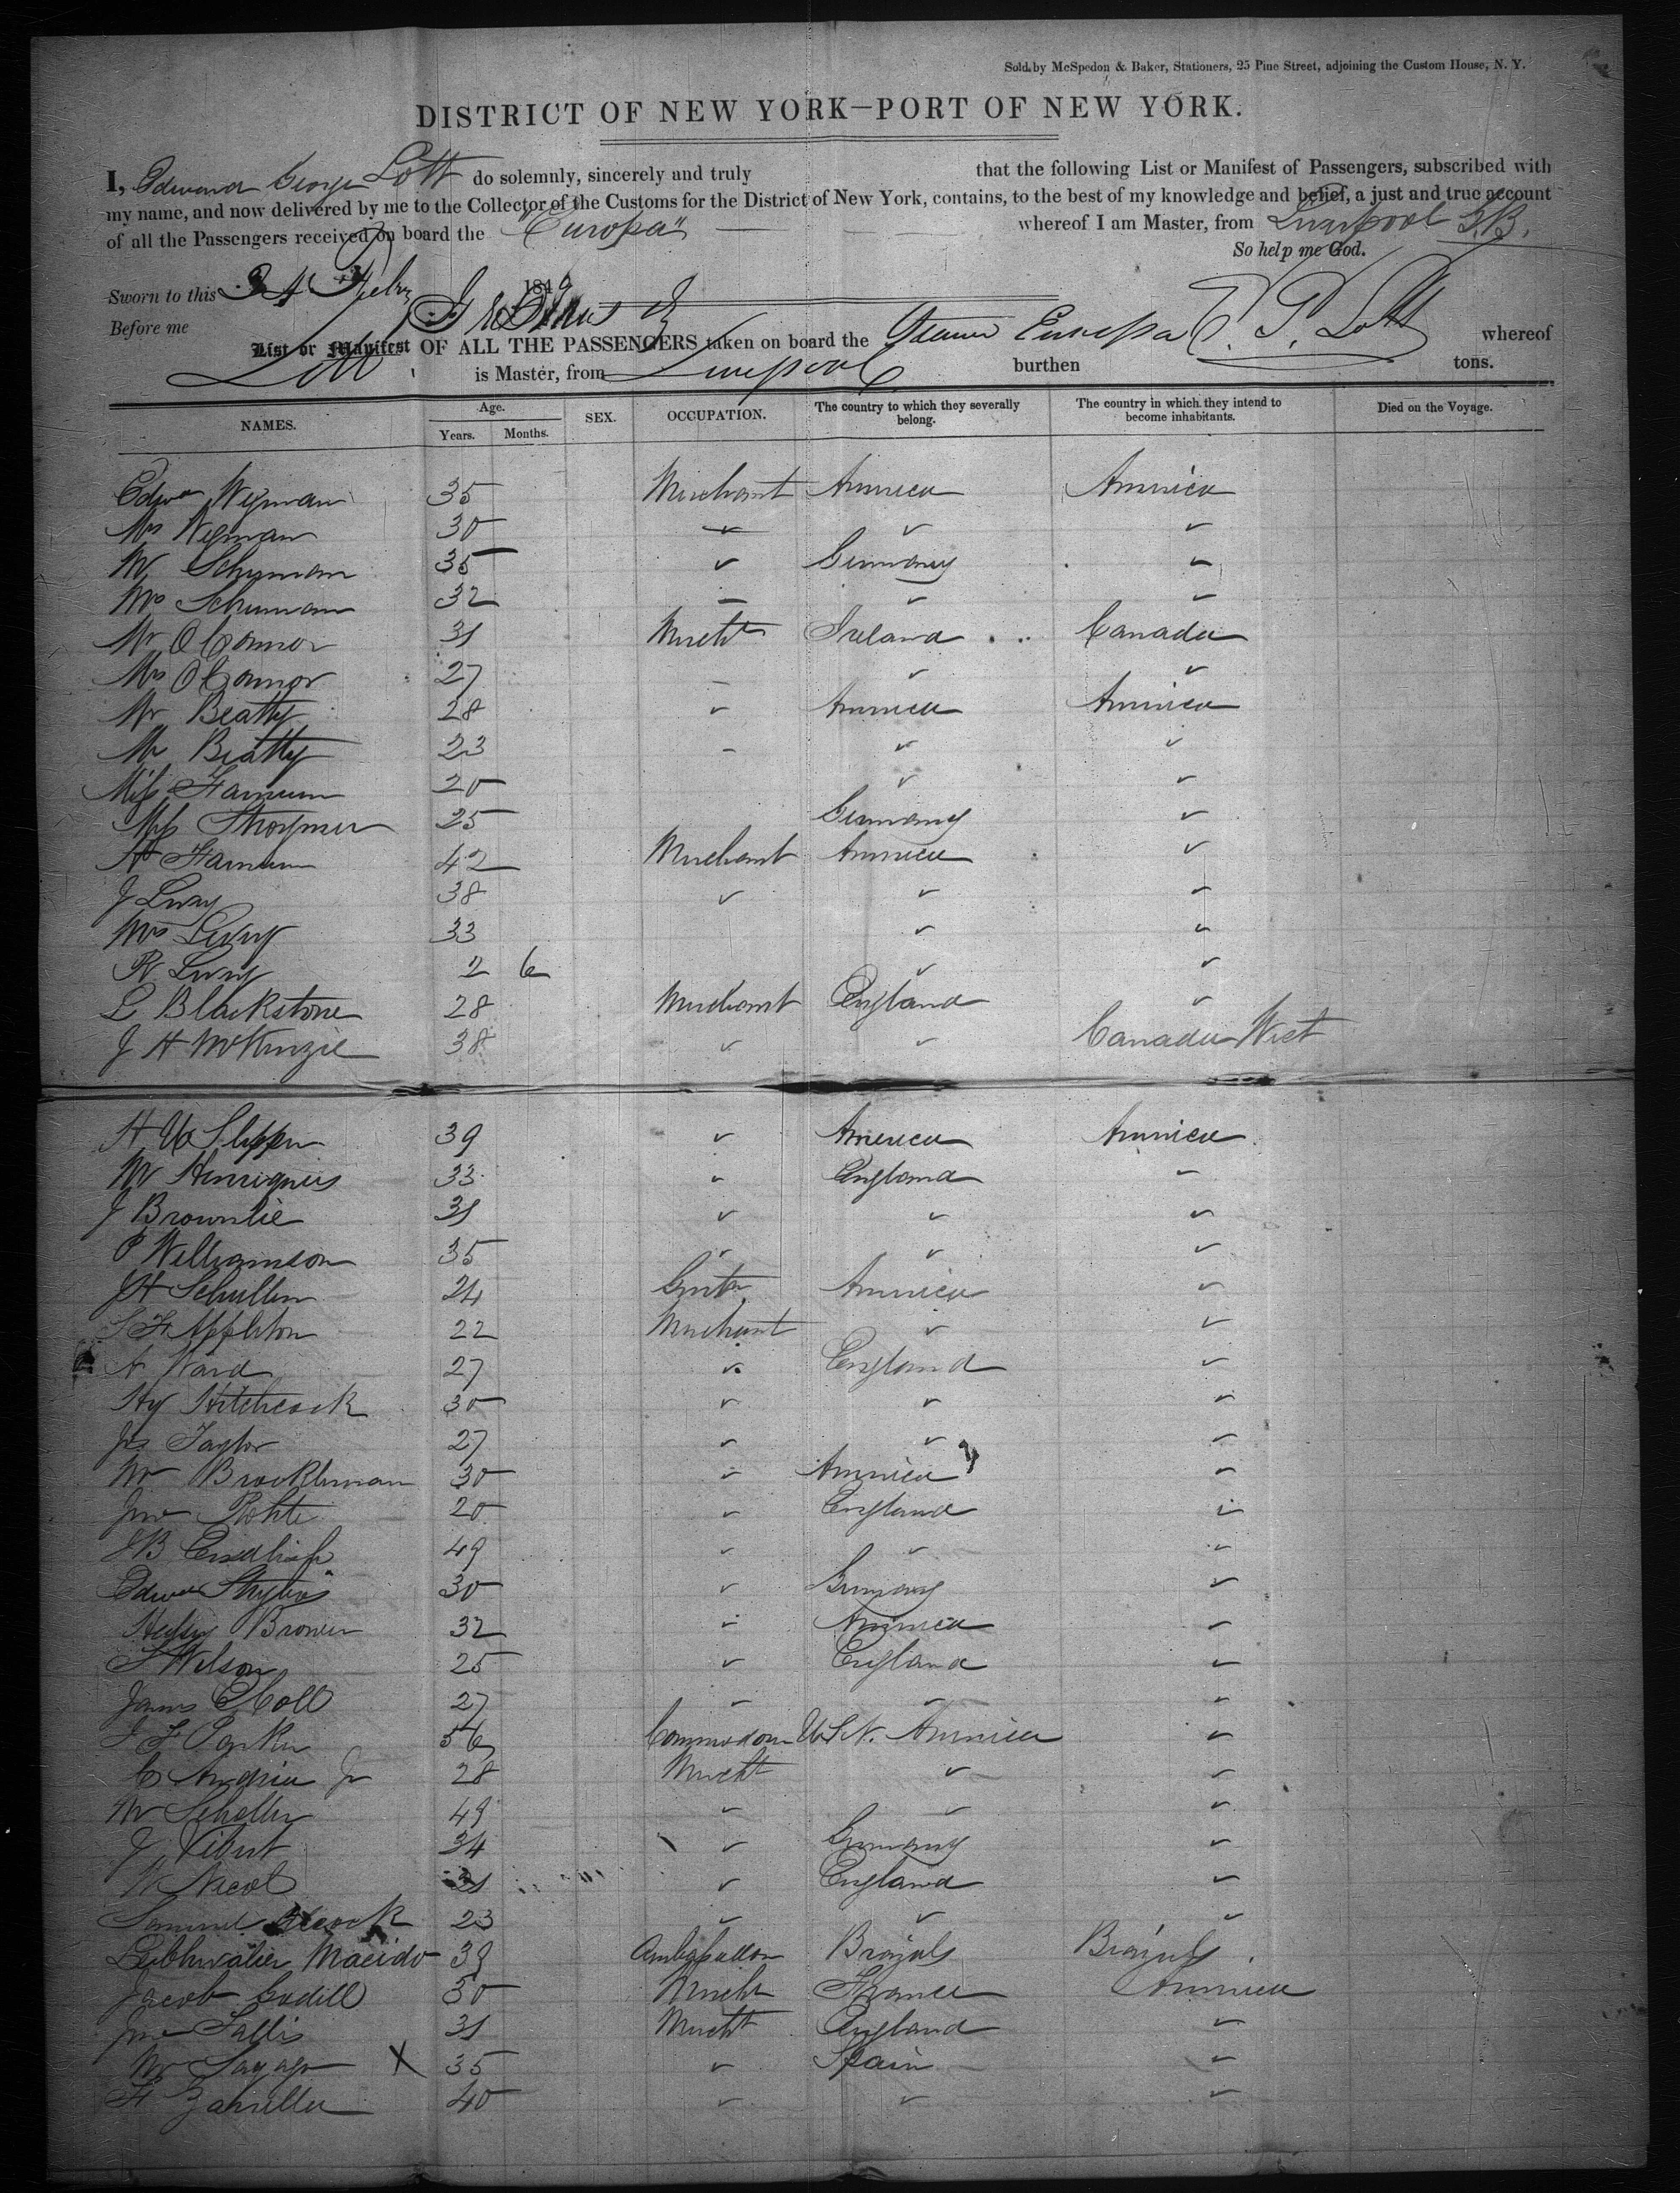 Sold by McSpedon & Baker, Stationers, 25 Pine Street, adjoining the Custom House, N. Y.
DISTRICT OF NEW YORK—PORT OF NEW YORK.
I, Edward George Lott do solemnly, sincerely and truly that the following List or Manifest of Passengers, subscribed with
my name, and now delivered by me to the Collector of the Customs for the District of New York, contains, to the best of my knowledge and belief, a just and true account
of all the Passengers received on board the "Europa" whereof I am Master, from Liverpool G.B.
So help me God.
Sworn to this 24 Feby 1849
Before me
List or Manifest OF ALL THE PASSENGERS taken on board the Steamer Europa E. G. Lott whereof
Lott is Master, from Liverpool burthen tons.
NAMES. Age. Years. Months. SEX. OCCUPATION. The country to which they severally belong. The country in which they intend to become inhabitants. Died on the Voyage.
Edwd Wigman 35 Merchant America America
Mrs Wigman 30 ✓ ✓ ✓
Mr Schuman 35 ✓ Germany ✓
Mrs Schuman 32 — ✓ ✓
Mr O Connor 31 Mercht Ireland Canada
Mrs O Connor 27 — ✓ ✓
Mr Beatty 28 ✓ America America
Mrs Beatty 23 — ✓ ✓
Miss Farnum 20 ✓ ✓
Miss 25 Germany ✓
H Farnum 42 Merchant America ✓
J Levy 38 ✓ ✓ ✓
Mrs Levy 33 ✓ ✓
R Levy 2 6 ✓ ✓
L Blackstone 28 Merchant England ✓
J H McKenzie 38 ✓ ✓ Canada West
H 39 ✓ America America
Mr Henriques 33 ✓ England ✓
J Brownlie 31 ✓ ✓ ✓
P Williamson 35 ✓ ✓ ✓
J H Schullen 24 Gentn America ✓
S F Appleton 22 Merchant ✓ ✓
A Ward 27 ✓ England ✓
Hy Hitchcock 30 ✓ ✓ ✓
Jas Taylor 27 ✓ ✓ ✓
Mr Brockleman 30 ✓ America ✓
Jno 20 ✓ England ✓
J B 49 ✓ ✓ ✓
Edwd 30 ✓ Germany ✓
Brower 32 ✓ America ✓
Wilson 25 ✓ England ✓
James C Coll 27 ✓ ✓ ✓
F Parker 56 Commodore U S N. America ✓
C Andrieu Jr 28 Mercht ✓ ✓
Mr Scheller 49 ✓ ✓ ✓
J 34 ✓ Germany ✓
W Nicol 31 ✓ England ✓
Samuel 23 ✓ ✓ ✓
Macido 39 Ambassador Brazils Brazils
Jacob Godill 50 Mercht France America
Jno Fallis 31 Mercht England ✓
Mr Sayago X 35 ✓ Spain ✓
F 40 ✓ ✓ ✓